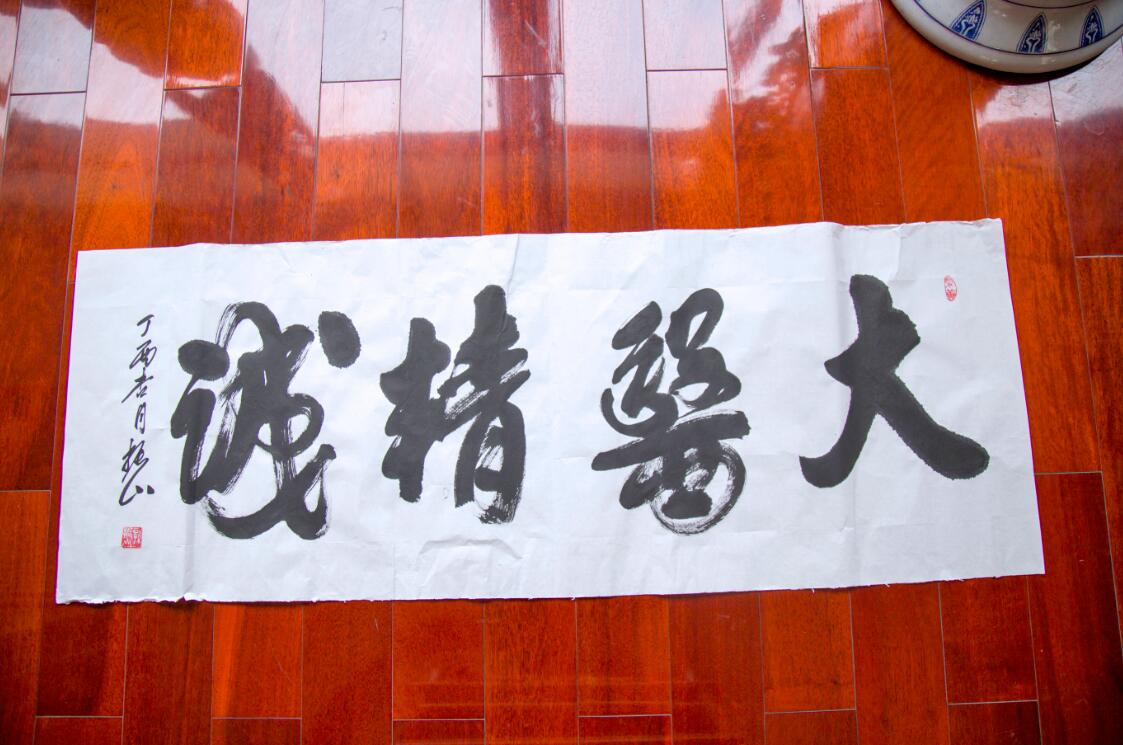 大醫精誠
丁酉吉月振山